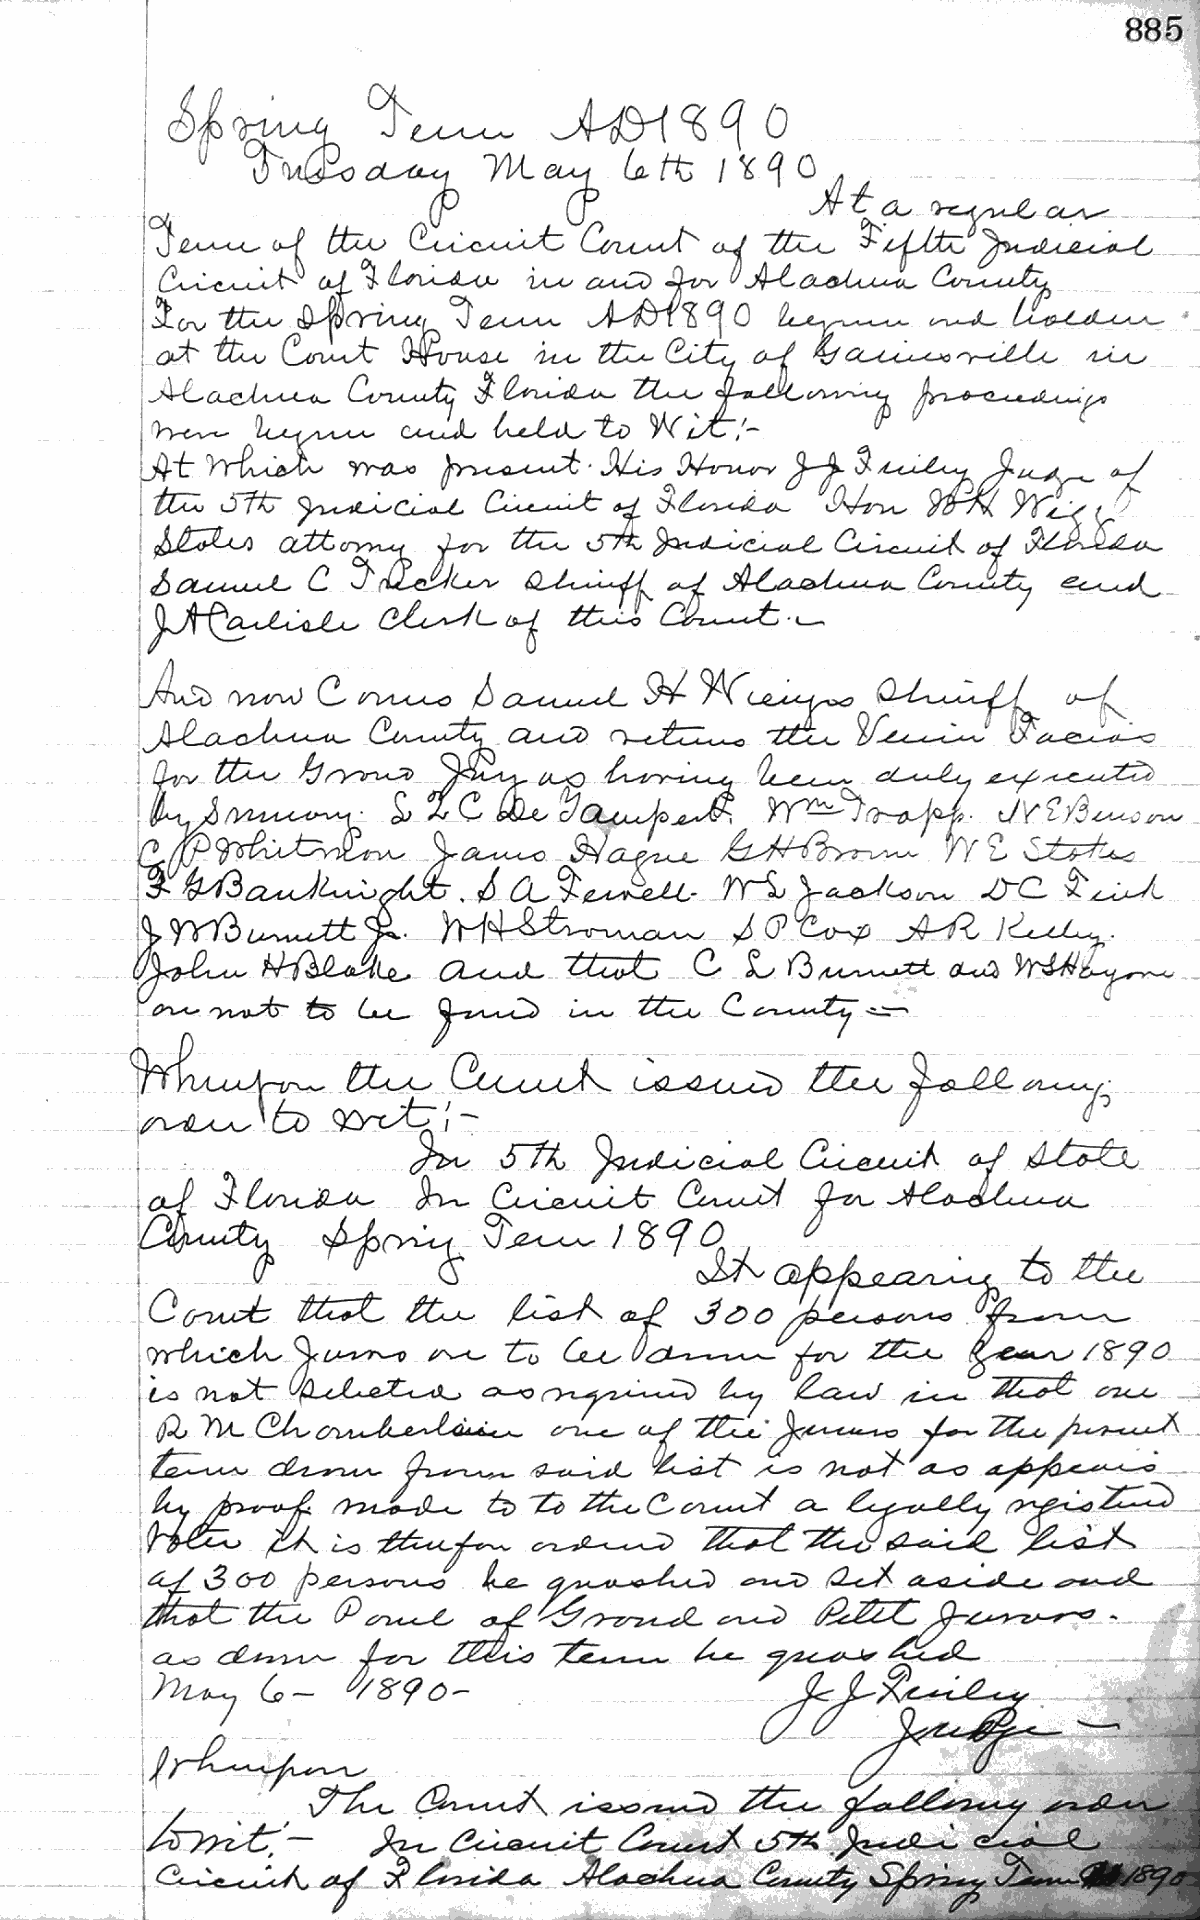 885
Spring Term AD1890
Tuesday May 6th 1890
At a regular
Term of the Circuit Court of the Fifth Judicial
Circuit of Florida in and for Alachua County
For the Spring Term AD1890 begun and holden
at the Court House in the City of Gainesville in
Alachua County Florida the following proceedings
were begun and held to Wit:-
At Which was present. His Honor J J Finley Judge of
the 5th Judicial Circuit of Florida Hon Wigg
States attorny for the 5th Judicial Circuit of Florida
Samuel C Tucker Sheriff of Alachua County and
J A Carlisle Clerk of this Court.-
And now Comes Samuel H Wienges Sheriff of
Alachua County and returns the Venire Facias
for the Grand Jury as having been duly executed
by Summons. Wm Trapp. N E Benson
C P Whitmon James Hague G H Brown W E Stokes
F G Bauknight. S A Ferrell. W L Jackson D C
J W Burnett Jr. W H Stroman S P Cox A R Kelley.
John H Blake and that C L Burnett and
are not to be found in the County-
Whereupon the Court issued the following
order to wit:-
In 5th Judicial Circuit of State
of Florida In Circuit Court for Alachua
County Spring Term 1890
It appearing to the
Court that the list of 300 persons from
which Jurors are to be drawn for the year 1890
is not selected as required by law in that one
R M Chamberlain one of the Jurors for the present
term drawn from said list is not as appears
by proof made to to the Court a legally registered
Voter it is therefor ordered that the said list
of 300 persons be quashed and set aside and
that the Panel of Grand and Petit Jurors.
as drawn for this term be quashed
May 6- 1890-
J J Finley
Judge-
Whereupon
The Court issued the following order
to wit:- In Circuit Court 5th Judicial
Circuit of Florida Alachua County Spring Term 1890